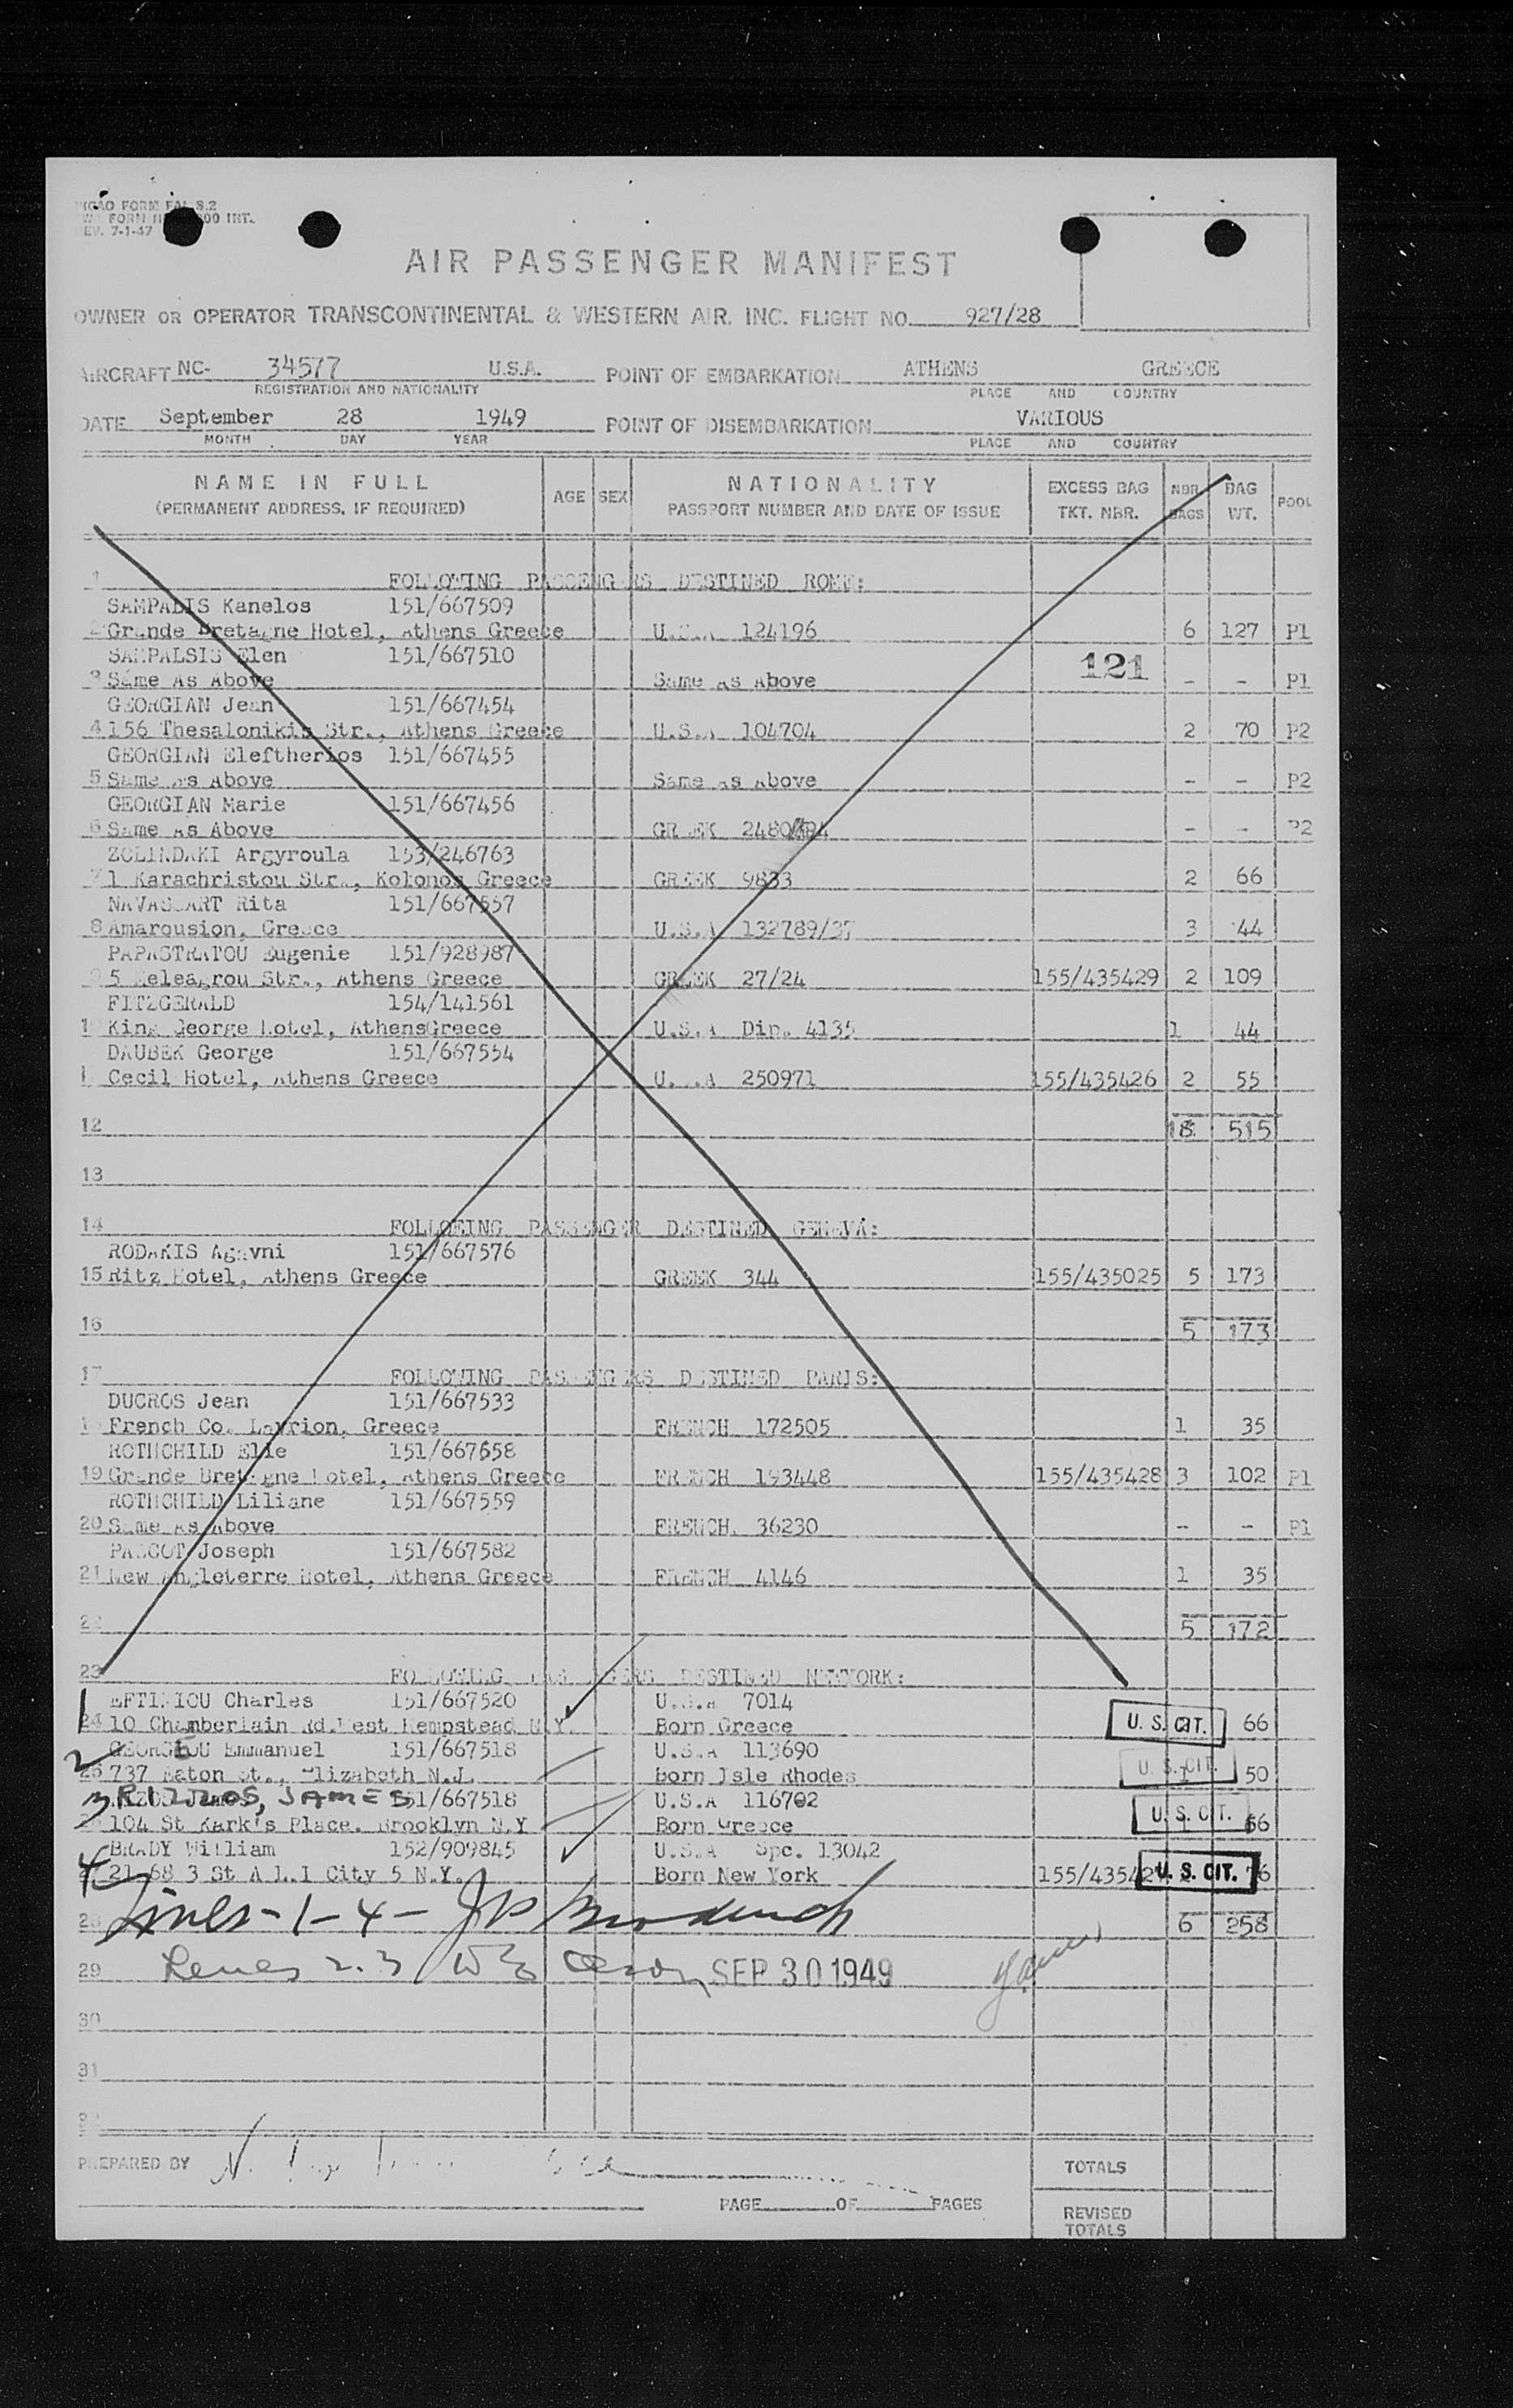 ICAO FORM FAL S.2
FORM 00 INT.
REV. 7-1-47
AIR PASSENGER MANIFEST
OWNER OR OPERATOR TRANSCONTINENTAL & WESTERN AIR, INC. FLIGHT NO. 927/28
AIRCRAFT NC- 34577 U.S.A. POINT OF EMBARKATION ATHENS GREECE
REGISTRATION AND NATIONALITY PLACE AND COUNTRY
DATE September 28 1949 POINT OF DISEMBARKATION VARIOUS
MONTH DAY YEAR PLACE AND COUNTRY
NAME IN FULL AGE SEX NATIONALITY EXCESS BAG NBR BAG POOL
(PERMANENT ADDRESS, IF REQUIRED) PASSPORT NUMBER AND DATE OF ISSUE TKT. NBR. BAGS WT.
1 FOLLOWING PASSENGERS DESTINED ROME:
SAMPALIS Kanelos 151/667509
2 Grande Bretagne Hotel, Athens Greece U.S.A 124196 6 127 P1
SAMPALSIS Elen 151/667510 121
3 Same As Above Same As Above - - P1
GEORGIAN Jean 151/667454
4 156 Thesalonikis Str., Athens Greece U.S.A 104704 2 70 P2
GEORGIAN Eleftherios 151/667455
5 Same As Above Same As Above - - P2
GEORGIAN Marie 151/667456
6 Same As Above GREEK - - P2
ZOLINDAKI Argyroula 153/246763
7 1 Karachristou Str., Kolonos Greece GREEK 9833 2 66
NAVASSART Rita 151/667557
8 Amarousion, Greece U.S.A 132789/37 3 44
PAPASTRATOU Eugenie 151/928987
9 5 Meleagrou Str., Athens Greece GREEK 27/24 155/435429 2 109
FITZGERALD 154/141561
10 King George Hotel, AthensGreece U.S.A Dip. 4135 1 44
DAUBEK George 151/667554
1 Cecil Hotel, Athens Greece U.S.A 250971 155/435426 2 55
12 18 515
13
14 FOLLOWING PASSENGER DESTINED GENEVA:
RODAKIS Agavni 151/667576
15 Ritz Hotel, Athens Greece GREEK 344 155/435025 5 173
16 5 173
17 FOLLOWING PASSENGERS DESTINED PARIS:
DUCROS Jean 151/667533
French Co. Lavrion, Greece FRENCH 172505 1 35
ROTHCHILD Elie 151/667658
19 Grande Bretagne Hotel, Athens Greece FRENCH 193448 155/435428 3 102 P1
ROTHCHILD Liliane 151/667559
20 Same As Above FRENCH. 36230 - - P1
PASCOT Joseph 151/667582
21 New Angleterre Hotel, Athens Greece FRENCH 4146 1 35
22 5 172
23 FOLLOWING PASSENGERS DESTINED NEWYORK:
1 EFTIMIOU Charles 151/667520 U.S.A 7014
24 10 Chamberlain Rd.West Hempstead N.Y. Born Greece U. S. CIT. 66
2 GEORGEOU Emmanuel 151/667518 U.S.A 113690
25 737 Eaton St., Elizabeth N.J. Born Isle Rhodes U. S. CIT. 50
3 RIZZOS, JAMES 151/667518 U.S.A 116702
104 St Mark's Place. Brooklyn N.Y Born Greece U. S. CIT. 66
4 BRADY William 152/909845 U.S.A Spc. 13042
21-68 3 St A L.I City 5 N.Y. Born New York U. S. CIT. 76
28 Lines-1-4- 6 258
29 Lines 2.3 SEP 30 1949
30
31
32
PREPARED BY TOTALS
PAGE OF PAGES REVISED
TOTALS